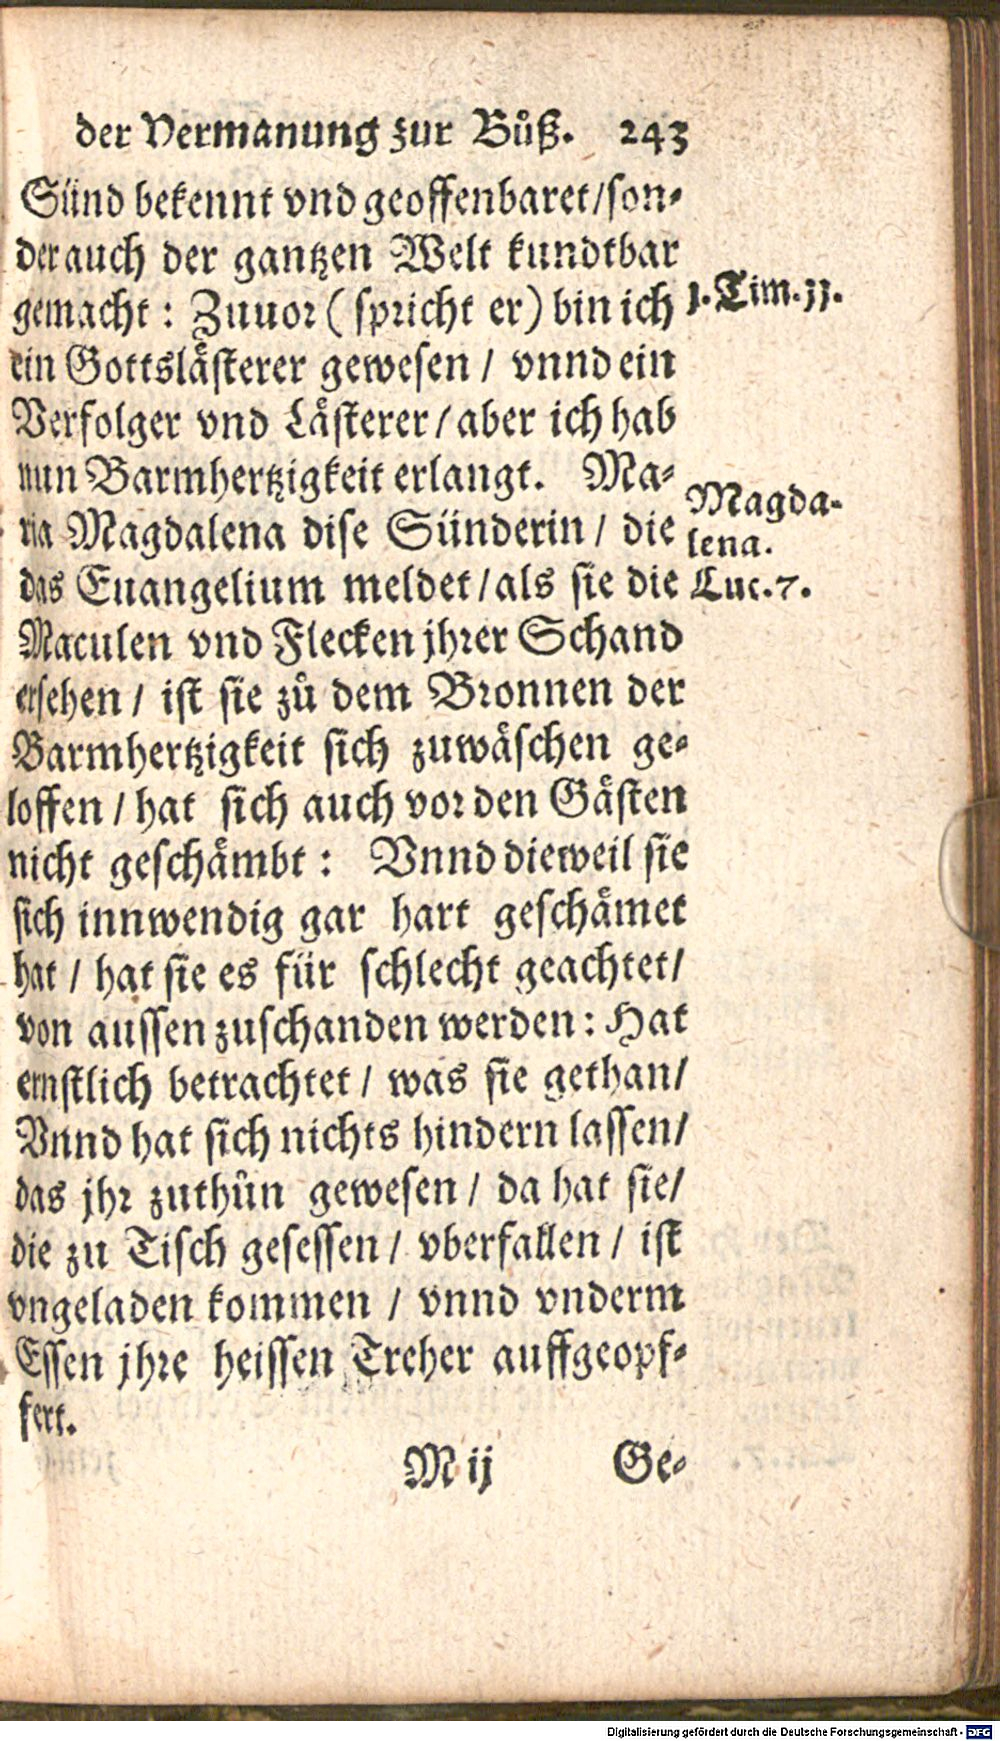 der Vermanung zur Bůß. 243
Sünd bekennt vnd geoffenbaret/son-
der auch der gantzen Welt kundtbar
gemacht: Zuuor (spricht er) bin ich
ein Gottslåsterer gewesen / vnnd ein
Verfolger vnd Låsterer/aber ich hab
nun Barmhertzigkeit erlangt. Ma-
ria Magdalena dise Sünderin/ die
das Euangelium meldet/als sie die
Maculen vnd Flecken jhrer Schand
ersehen/ ist sie zů dem Bronnen der
Barmhertzigkeit sich zuwåschen ge-
loffen/hat sich auch vor den Gåsten
nicht geschåmbt: Vnnd dieweil sie
sich innwendig gar hart geschåmet
hat / hat sie es für schlecht geachtet/
von aussen zuschanden werden: Hat
ernstlich betrachtet/ was sie gethan/
Vnnd hat sich nichts hindern lassen/
das jhr zuthůn gewesen/ da hat sie/
die zu Tisch gesessen/ vberfallen/ ist
vngeladen kommen / vnnd vnderm
Essen jhre heissen Treher auffgeopf-
fert.
M ij Ge-
1. Tim. 11.
Magda-
lena.
Luc. 7.
Digitalisierung gefördert durch die Deutsche Forschungsgemeinschaft - DFG